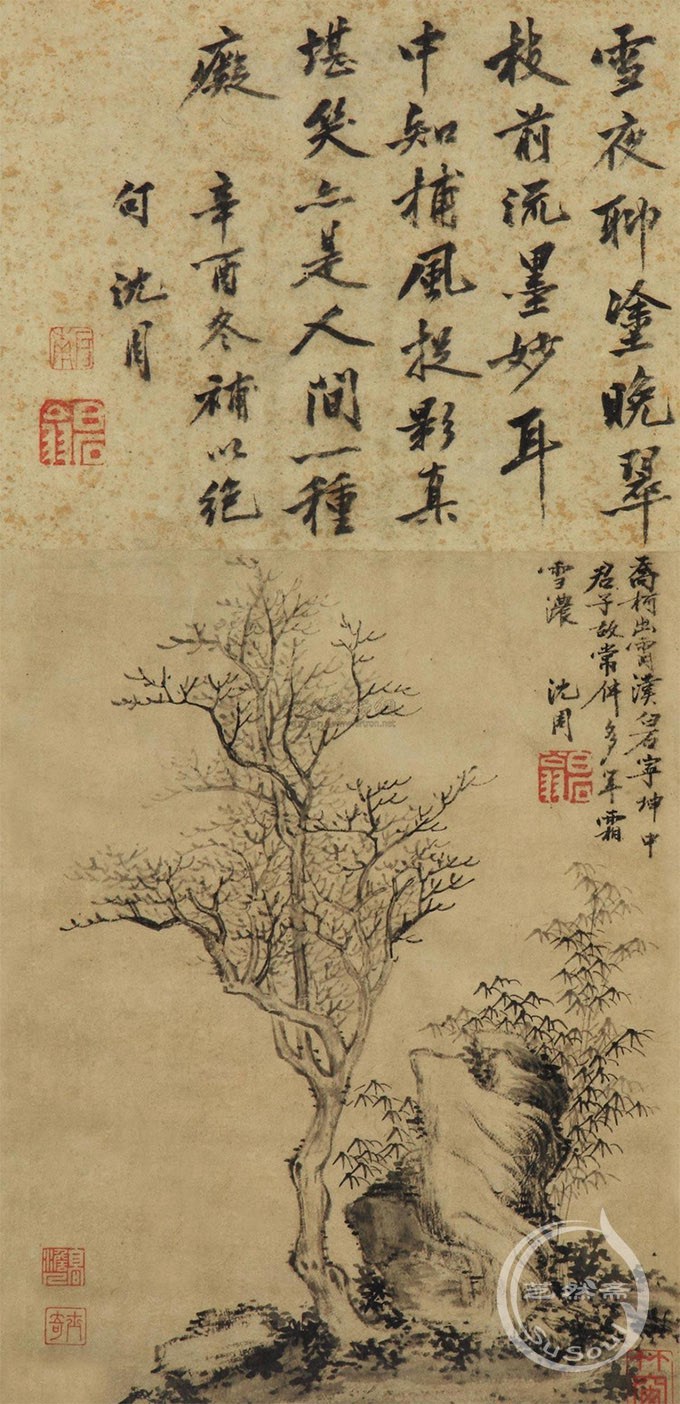 雪夜聊塗晚翠
枝前流墨妙耳
中知捕風捉影真
堪笑亦是人間一種
癡 辛酉冬補以絕
句 沈周
喬柯出霄漢白石寧坤中
君子故常伴多年霜
雪濃 沈周
石田